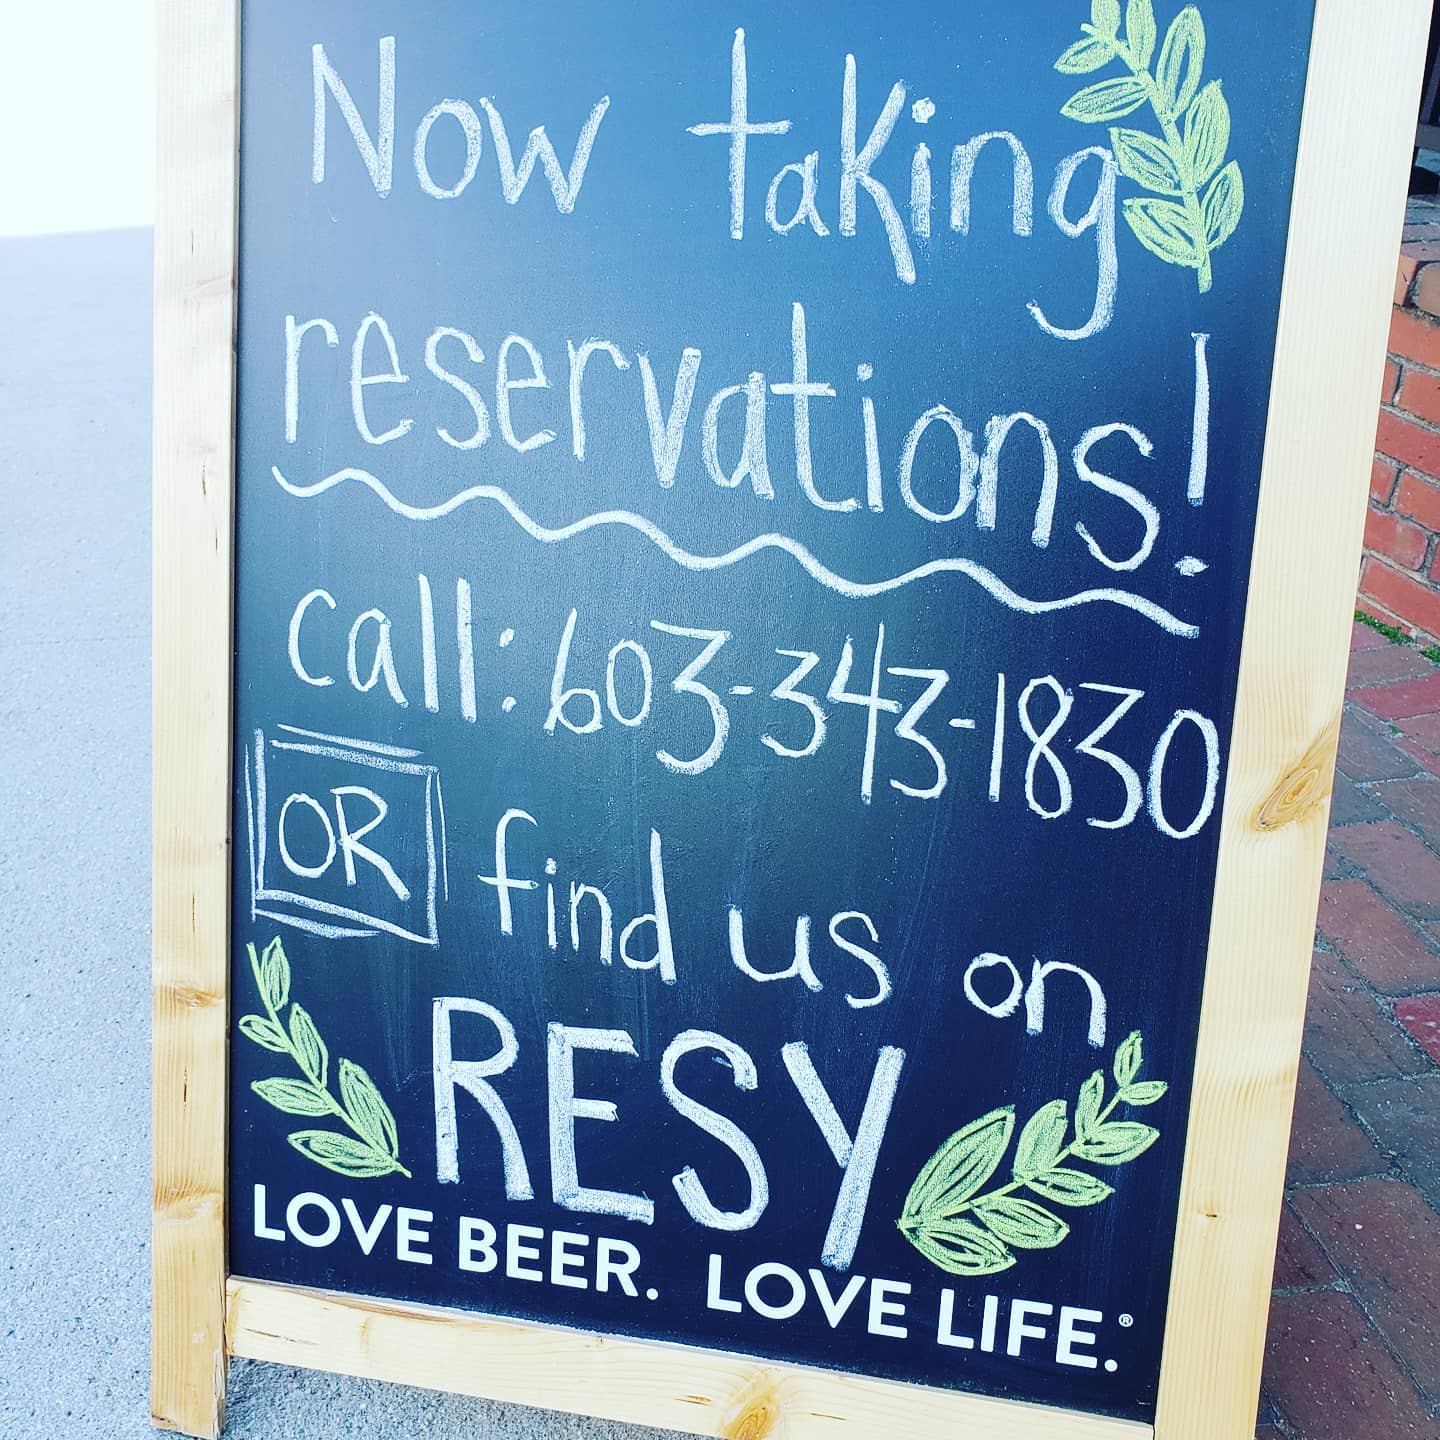 Now taking
reservations!
call: 603-343-1830
OR find us on
RESY
LOVE BEER. LOVE LIFE.®